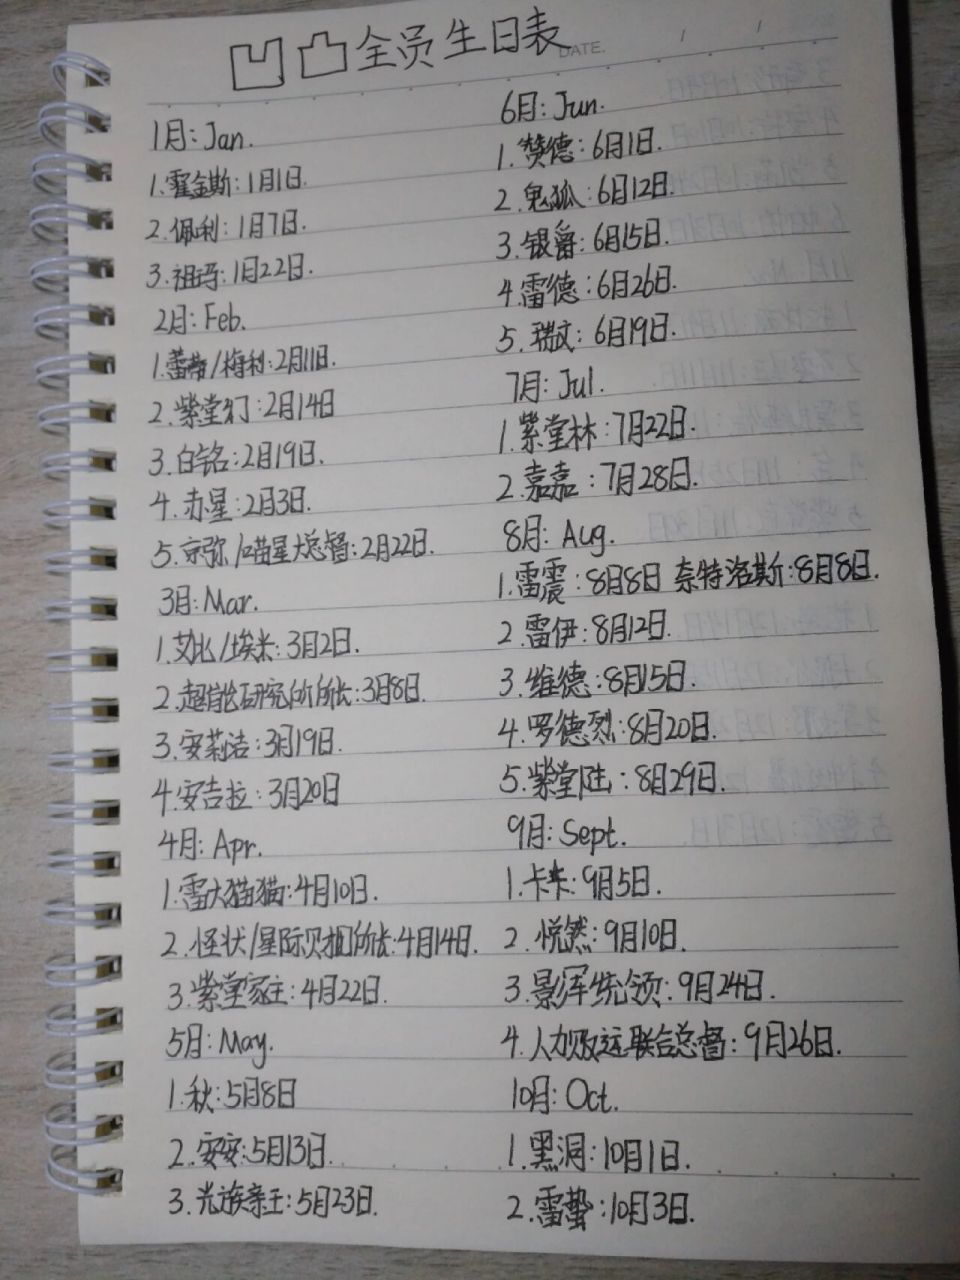 凹凸全员生日表
DATE.
1月: Jan.
1.霍金斯: 1月1日.
2.佩利: 1月7日.
3.祖玛: 1月22日.
2月: Feb.
1.蕾蒂/梅利: 2月11日.
2.紫堂幻: 2月14日
3.白铭: 2月19日.
4.赤星: 2月3日.
5.京弥/喵星大总督: 2月22日.
3月: Mar.
1.艾比/埃米: 3月2日.
2.超能研究所所长: 3月8日.
3.安莉洁: 3月19日.
4.安吉拉: 3月20日
4月: Apr.
1.雷大猫猫: 4月10日.
2.怪状/星际贝扣所长: 4月14日.
3.紫堂家主: 4月22日.
5月: May.
1.秋: 5月8日
2.安安: 5月13日.
3.光族亲王: 5月23日.
6月: Jun.
1.赞德: 6月1日.
2.鬼狐: 6月12日.
3.银爵: 6月15日.
4.雷德: 6月26日.
5.瑞文: 6月19日.
7月: Jul.
1.紫堂林: 7月22日.
2.嘉嘉: 7月28日.
8月: Aug.
1.雷震: 8月8日 奈特洛斯: 8月8日.
2.雷伊: 8月12日.
3.维德: 8月15日.
4.罗德烈: 8月20日.
5.紫堂陆: 8月29日.
9月: Sept.
1.卡米: 9月5日.
2.悦然: 9月10日.
3.景浑统领: 9月24日.
4.人力贩运联合总督: 9月26日.
10月: Oct.
1.黑洞: 10月1日.
2.雷蛰: 10月3日.